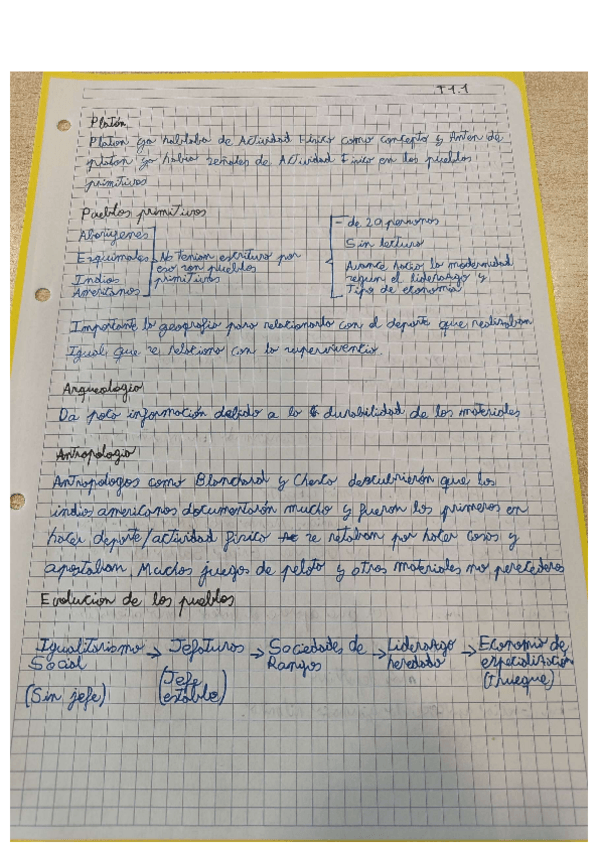 T 1.1
Platón
Platon ya hablaba de Actividad Físico como concepto y Anten de
platon ya habia señales de Actividad Físico en los pueblos
primitivos
Pueblos primitivos
Aborígenes
Esquimales
Indios
Americanos
No tenian escritura por
eso son pueblos
primitivos
- de 29 personas
Sin lectura
Avance hacia la modernidad
segun el liderazgo y
Tipo de economía
Importante la geografía para relacionarlo con el deporte que realizaban
Igual que se relaciona con la supervivencia
Arqueologia
Da poca información debido a la durabilidad de los materiales
Antropologia
Antropologos como Blanchard y Cheska descubrierón que los
indios americanos documentarón mucho y fueron los primeros en
hacer deporte/actividad física se retaban por hacer cosas y
apostaban. Muchos juegos de pelota y otros materiales no perecederos
Evolucion de los pueblos
Igualitarismo Social → Jefaturas → Sociedades de Rangos → Liderazgo heredado → Economia de especialización
(Sin jefe) (Jefe estable) (trueque)